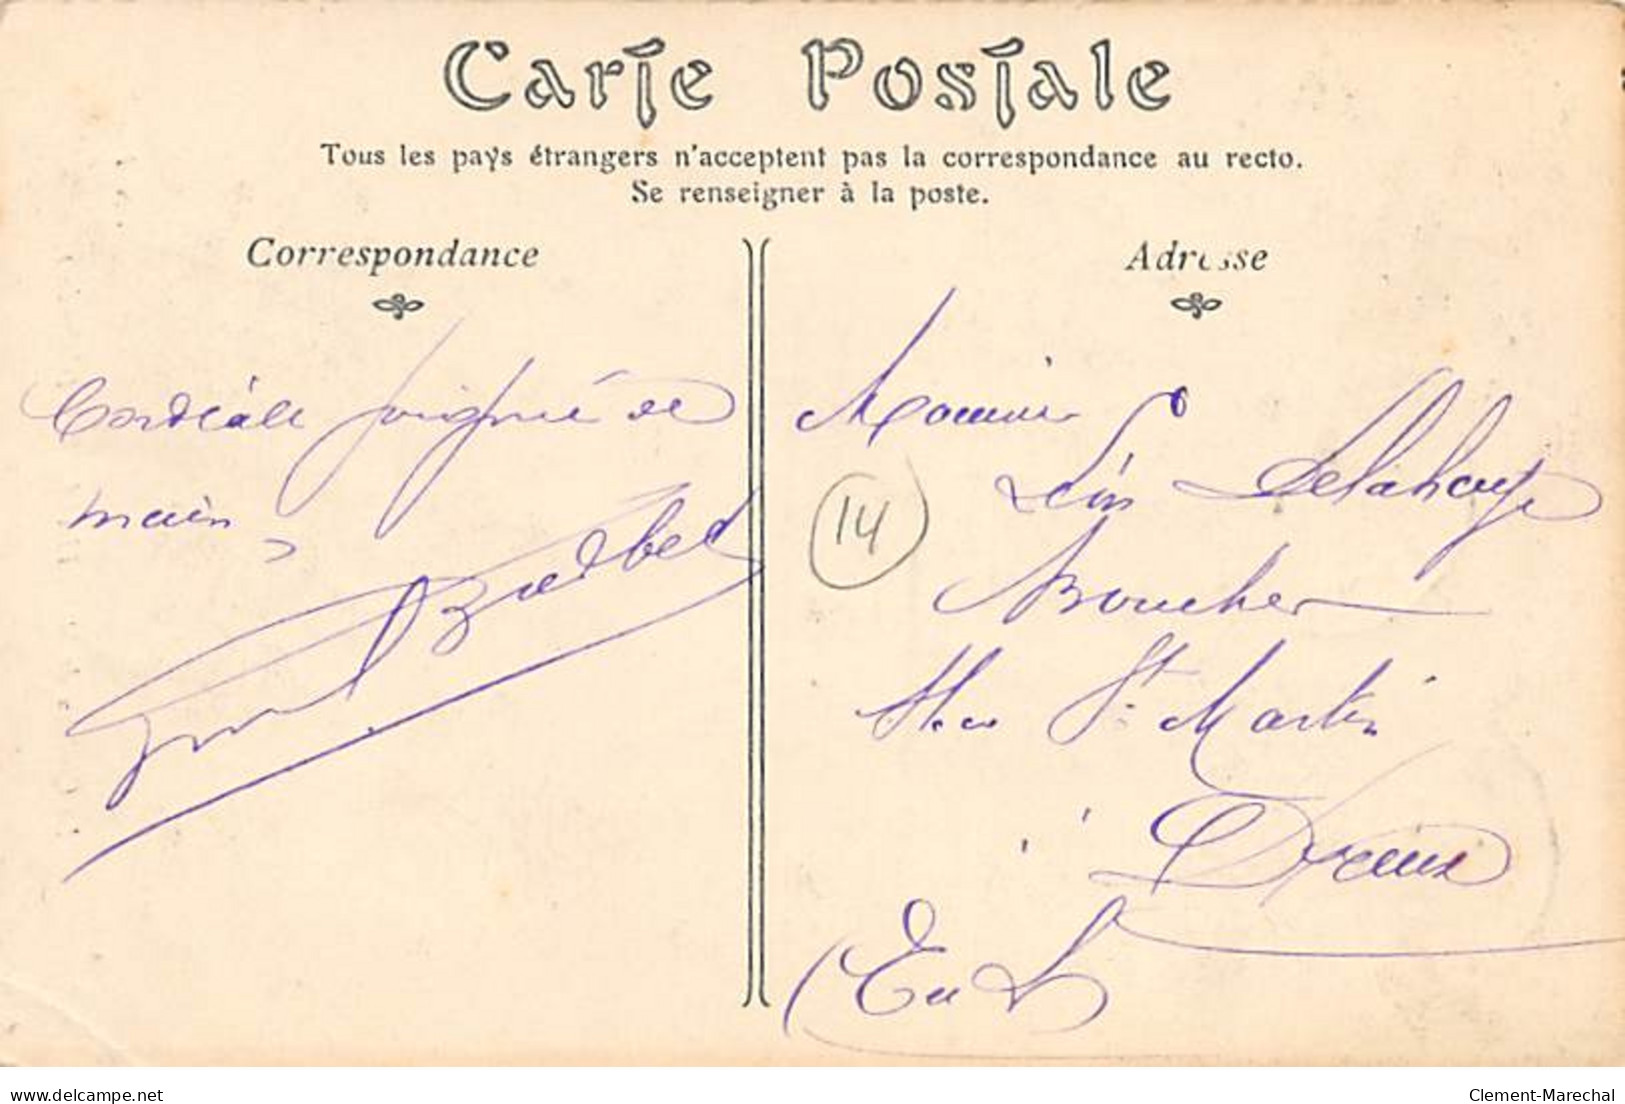 Carte Postale
Tous les pays étrangers n'acceptent pas la correspondance au recto.
Se renseigner à la poste.
Correspondance
Adresse
Cordiale poignée de
main
Monsieur
Léon Delahaye
Boucher
St Martin
à Dreux
(E et L
14
delcampe.net
Clement-Marechal